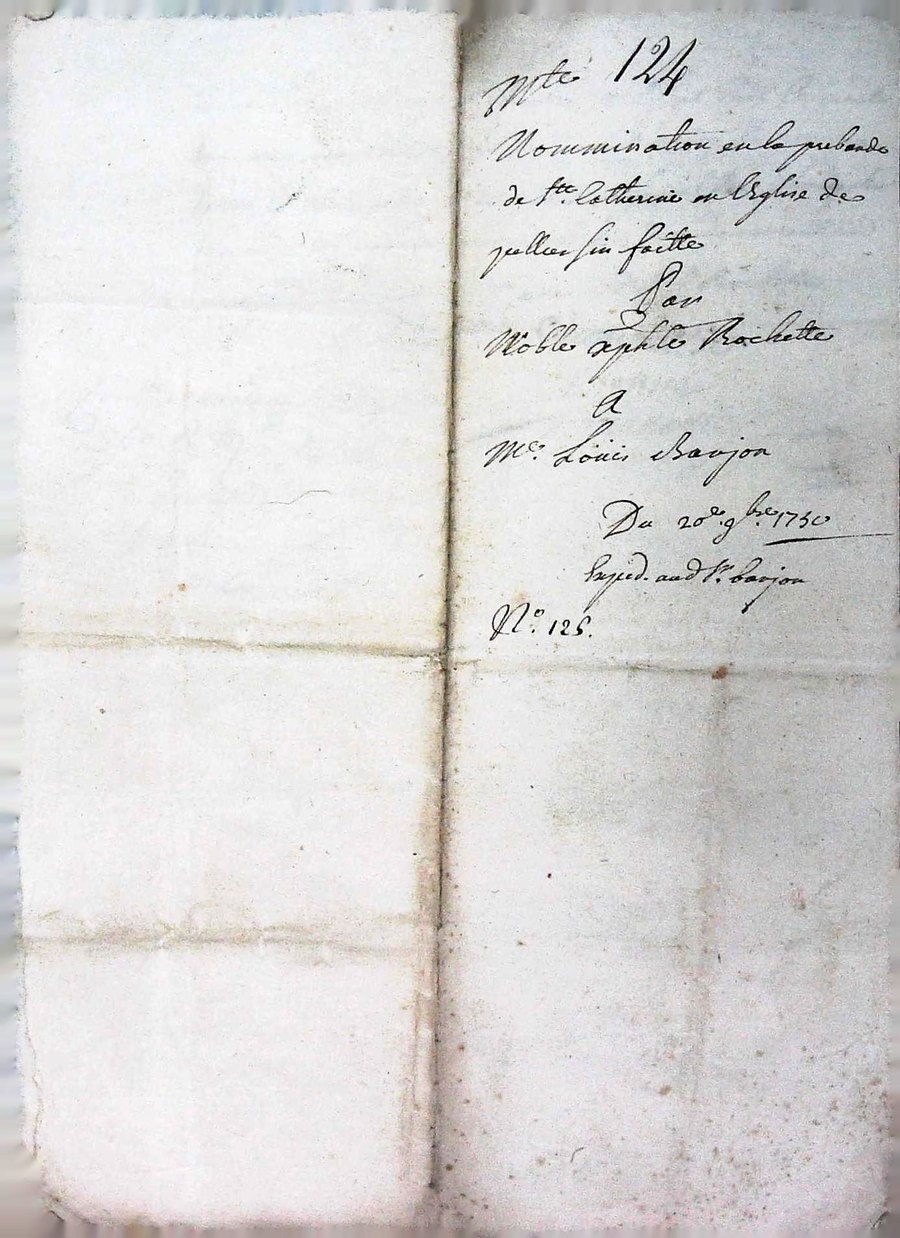 Mte 124
Nommination en la prebande
de Ste. Catherine en l'Eglise de
pellussin faitte
Par
Noble xphle Rochette
A
Me. Loüis Barjon
Du 20e. 9bre. 1750
Exped. aud Sr. barjon
N°. 125.